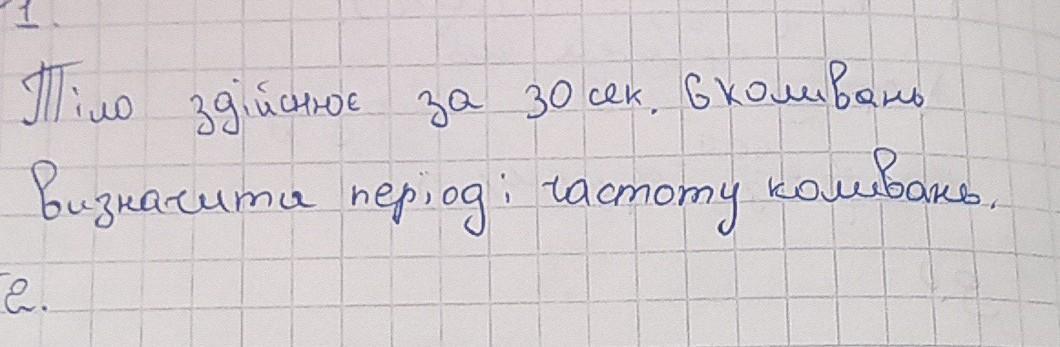 1.
Тіло здійснює за 30 сек. 6 коливань
Визначити період і частоту коливань.
2.